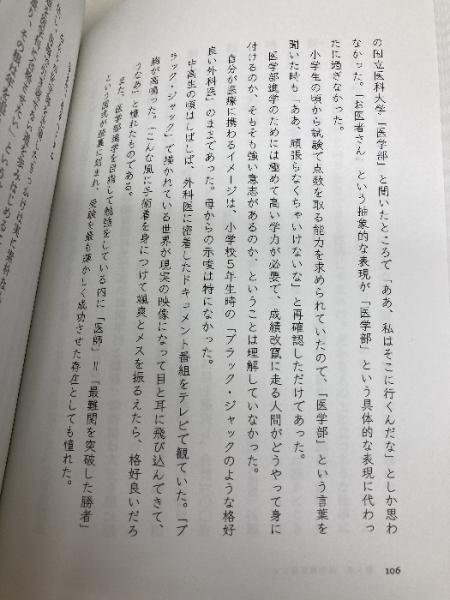 の国立医科大学「医学部」と聞いたところで「ああ、私はそこに行くんだな」としか思わ
なかった。「お医者さん」という抽象的な表現が「医学部」という具体的な表現に代わっ
たに過ぎなかった。
小学生の頃から試験で点数を取る能力を求められていたので、「医学部」という言葉を
聞いた時も「ああ、頑張らなくちゃいけないな」と再確認しただけであった。
医学部進学のためには極めて高い学力が必要で、成績改竄に走る人間がどうやって身に
付けるのか、そもそも強い意志があるのか、ということは理解していなかった。
自分が医療に携わるイメージは、小学校5年生時の「ブラック・ジャックのような格好
良い外科医」のままであった。母からの示唆は特になかった。
中高生の頃はしばしば、外科医に密着したドキュメント番組をテレビで観ていた。「ブ
ラック・ジャック」で描かれている世界が現実の映像になって目と耳に飛び込んできて、
胸が高鳴った。「こんな風に手術着を身につけて颯爽とメスを振るえたら、格好良いだろ
うなあ」と憧れたものである。
また、医学部進学を目指して勉強をしている内に「医師」＝「最難関を突破した勝者」
という図式が脳裏に刻まれ、受験を最も輝かしく成功させた存在としても憧れた。
106